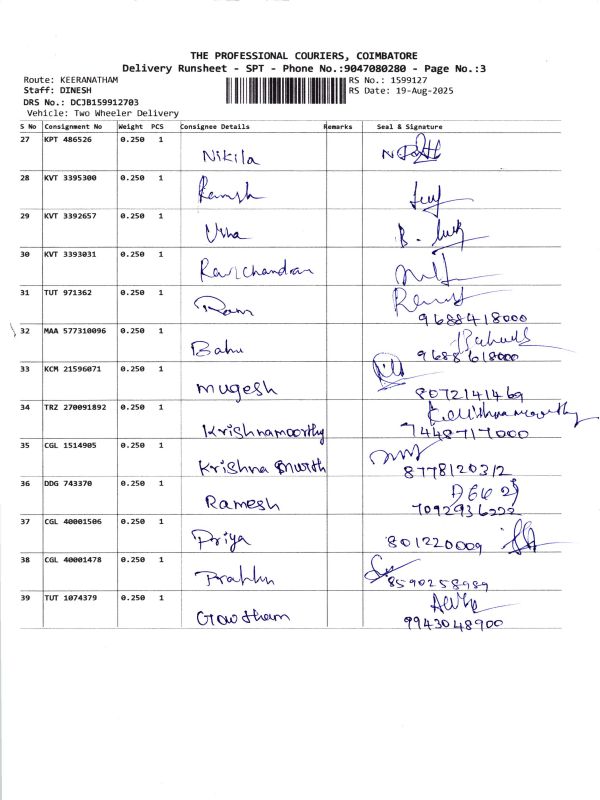 THE PROFESSIONAL COURIERS, COIMBATORE
Delivery Runsheet - SPT - Phone No.:9047080280 - Page No.:3
Route: KEERANATHAM RS No.: 1599127
Staff: DINESH RS Date: 19-Aug-2025
DRS No.: DCJB159912703
Vehicle: Two Wheeler Delivery
S No Consignment No Weight PCS Consignee Details Remarks Seal & Signature
27 KPT 486526 0.250 1
Nikila
28 KVT 3395300 0.250 1
Ramesh
29 KVT 3392657 0.250 1
Usha
30 KVT 3393031 0.250 1
Ravichandran
31 TUT 971362 0.250 1
Ram
9688418000
32 MAA 577310096 0.250 1
Babu
9688618000
33 KCM 21596071 0.250 1
Mugesh
8072141469
34 TRZ 270091892 0.250 1
Krishnamoorthy
7448717000
35 CGL 1514905 0.250 1
Krishna
8778120312
36 DDG 743370 0.250 1
Ramesh
7092936222
37 CGL 40001506 0.250 1
Priya
801220009
38 CGL 40001478 0.250 1
Prabhu
8590258989
39 TUT 1074379 0.250 1
Gowtham
9943048900